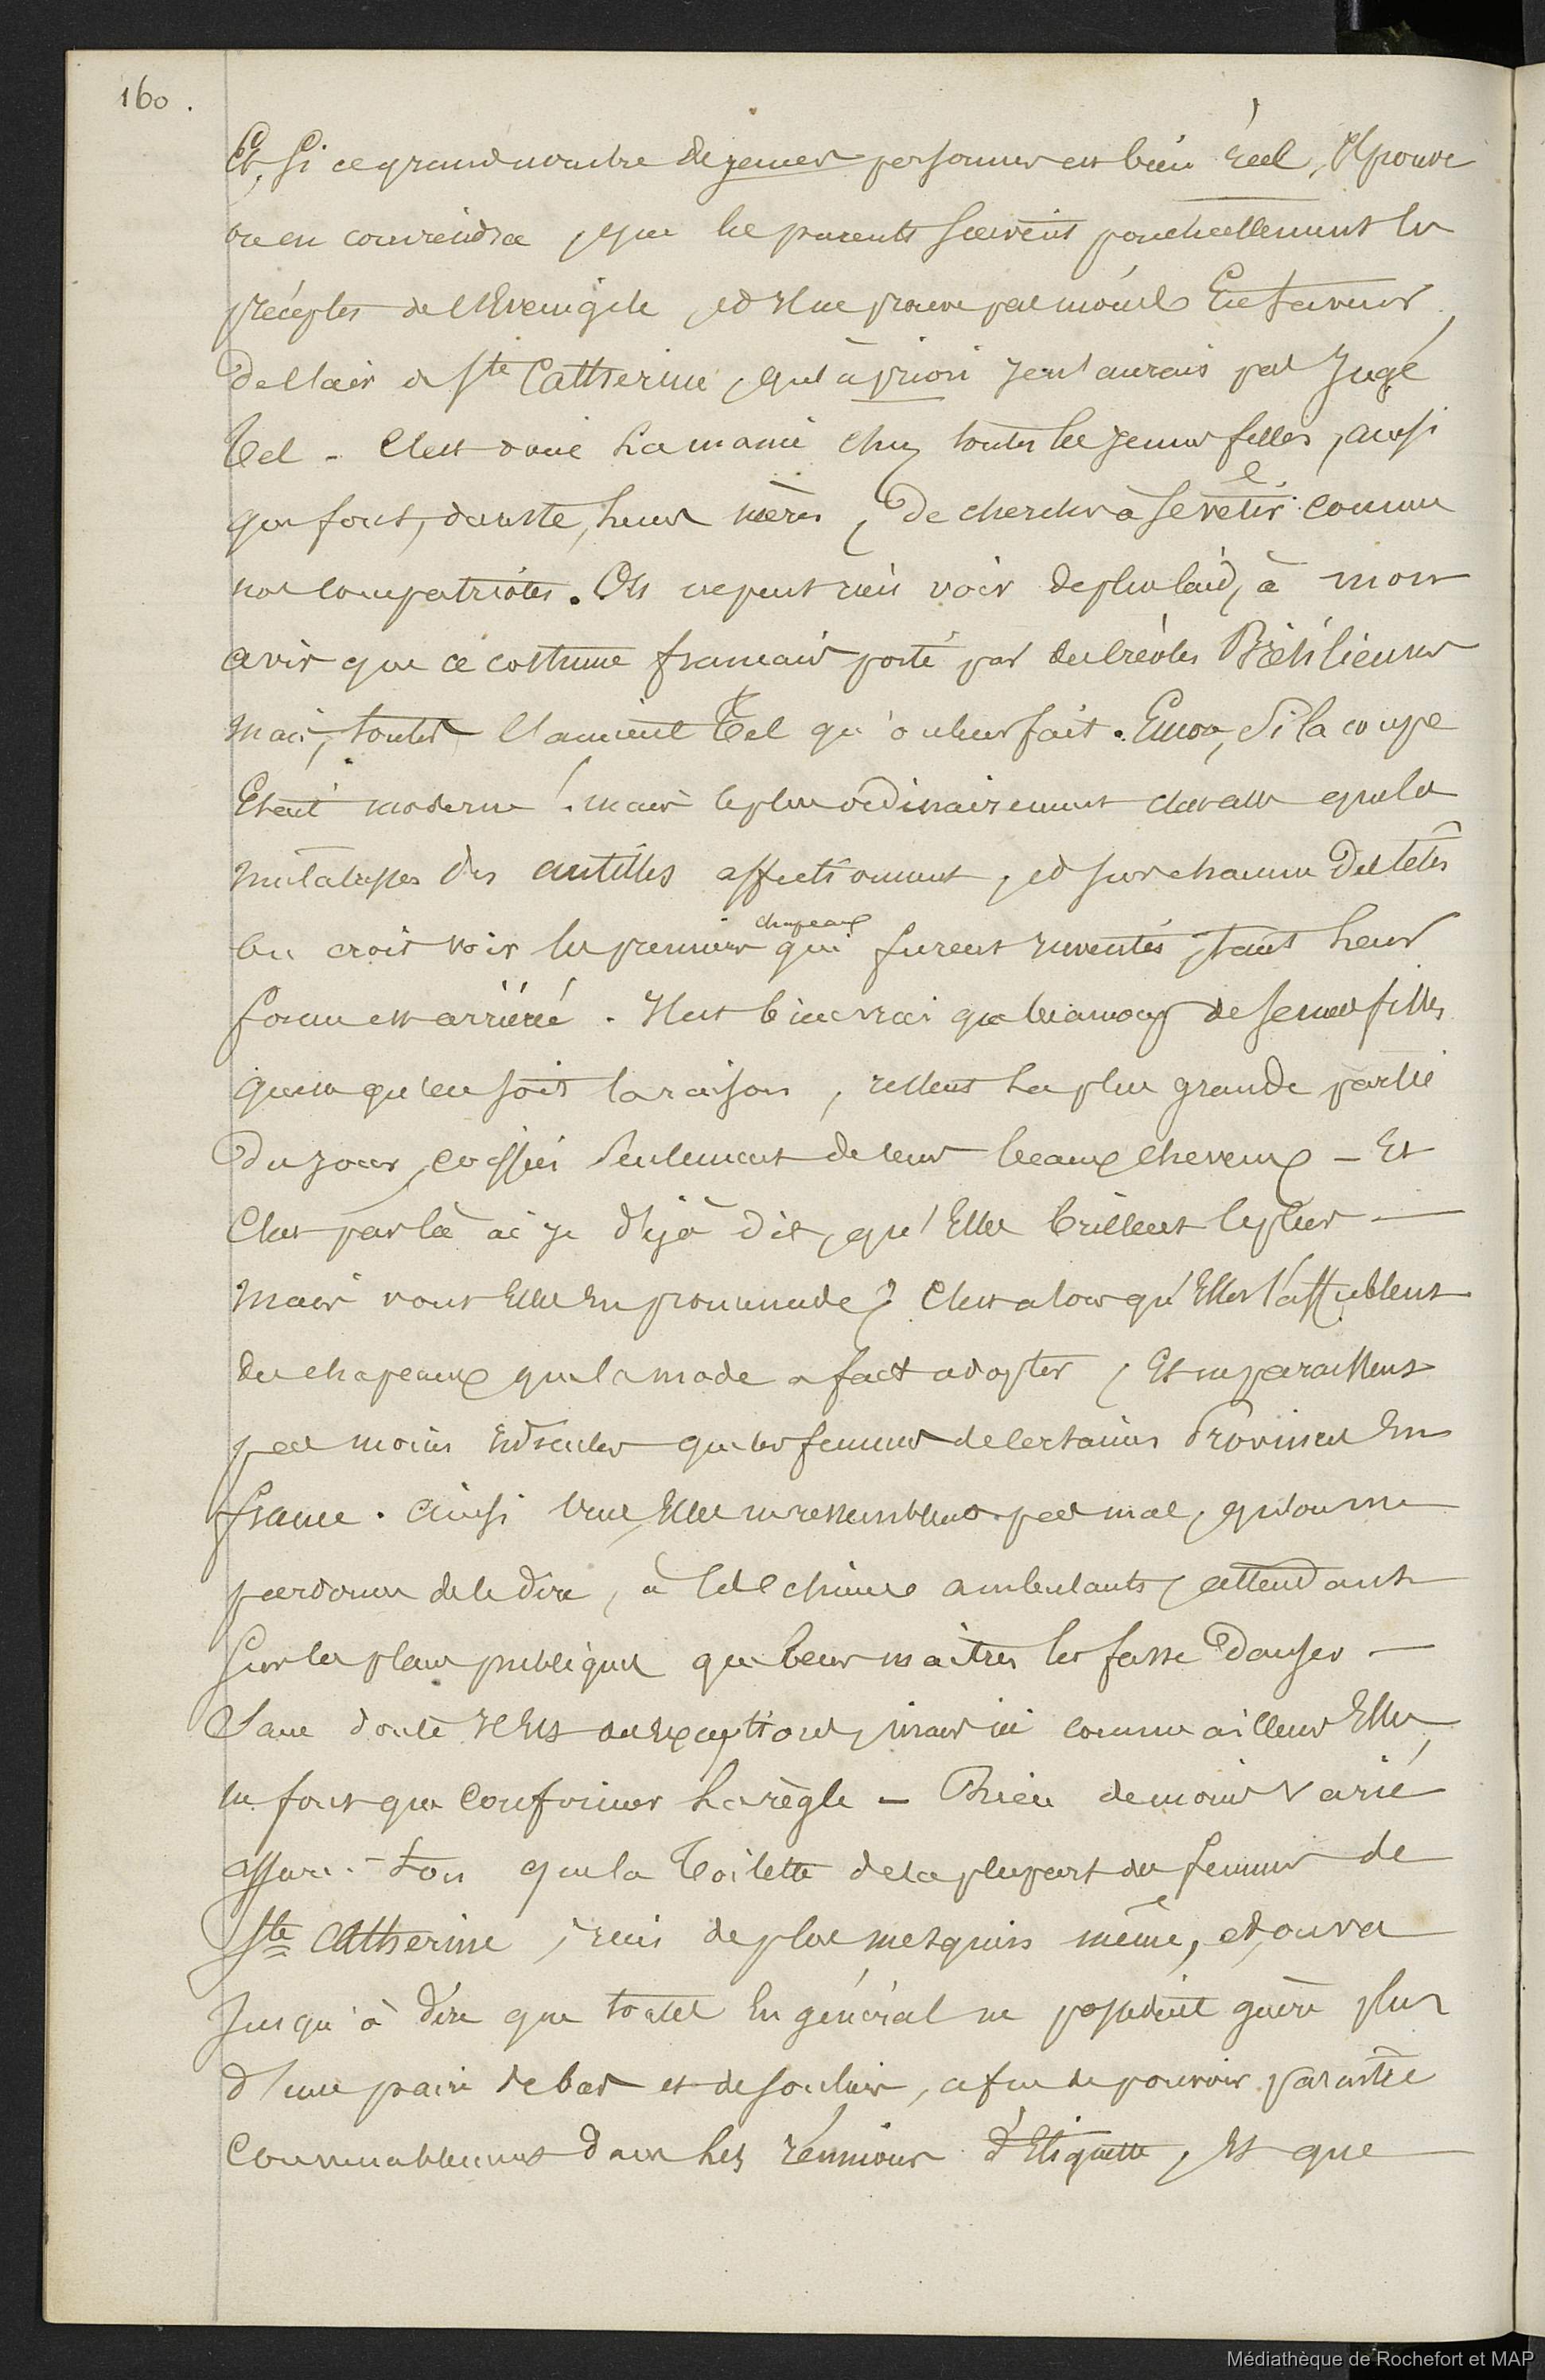 160.
Et, si ce grand nombre de jeunes personnes est bien réel, il prouve
on en conviendra, que les parents suivent ponctuellement les
préceptes de l'Evangile, et il ne prouve pas moins En faveur
de l'air de Ste Catherine, qu'à priori je n'l'aurais pas Jugé
Tel - C'est donc la manie chez toutes les jeunes filles, ainsi
que font, du reste, leurs mères, De chercher à se vetir comme
nos compatriotes. On ne peut rien voir de plus laid, à mon
avis que ce costume français porté par des Créoles Brésiliennes
mais, toutes l'aiment Tel qu'on leur fait. Encor, Si la coupe
Etait moderne! mais le plus ordinairement c'est celle que les
mulatresses des antilles affectionnent, et sur chacune Des têtes
On croit voir les premiers chapeaux qui furent inventés, tant leur
forme est arriérée. Il est bien vrai que beaucoup de jeunes filles
quelle qu'en soit la raison, restent la plus grande partie
Du jour, coiffées Seulement de leurs beaux cheveux - Et
C'est par là ai je déjà dit, qu'Elles brillent le plus -
Mais vont Elles En promenade? C'est alors qu'Elles s'affublent
des chapeaux que la mode a fait adopter, Et ne paraissent
pas moins ridicules que les femmes de certaines Provinces En
france. Ainsi vues, Elles ne ressemblent pas mal, qu'on me
pardonne de le dire, à ces chiens ambulants, attendant
Sur les places publiques que leurs maîtres les fasse Danser -
Sans doute il est des exceptions, mais ici comme ailleurs Elles
ne font que confirmer la règle - Rien de moins Varié
assure-t-on que la Toilette de la plupart des femmes de
Ste Catherine, rien de plus mesquin même, et, on va
Jusqu'à dire que toutes En général ne possèdent guère plus
d'une paire de bas et de souliers, afin de pouvoir paraître
Convenablement dans les réunions d'Etiquette, Et que
Médiathèque de Rochefort et MAP